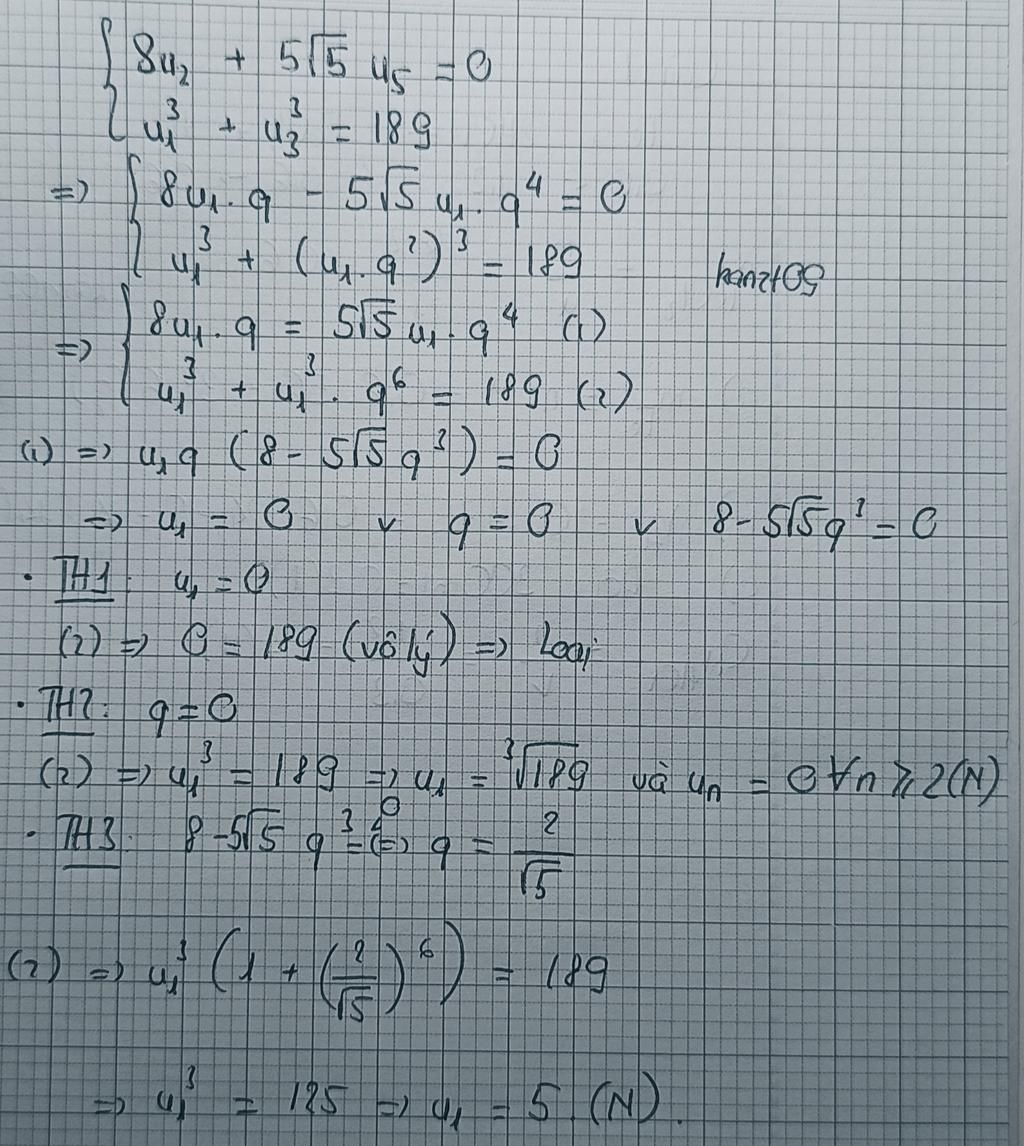 { 8u₂ + 5√5 u₅ = 0
u₁³ + u₃³ = 189
=> { 8u₁.q - 5√5 u₁.q⁴ = 0
u₁³ + (u₁.q²)³ = 189
=> { 8u₁.q = 5√5 u₁.q⁴ (1)
u₁³ + u₁³.q⁶ = 189 (2)
(1) => u₁q (8 - 5√5q³) = 0
=> u₁ = 0 v q = 0 v 8 - 5√5q³ = 0
• TH1: u₁ = 0
(2) => 0 = 189 (vô lý) => Loại
• TH2: q = 0
(2) => u₁³ = 189 => u₁ = ³√189 và uₙ = 0 ∀n ≥ 2 (N)
• TH3: 8 - 5√5 q³ = 0 <=> q = 2/√5
(2) => u₁³ (1 + (2/√5)⁶) = 189
=> u₁³ = 125 => u₁ = 5. (N).